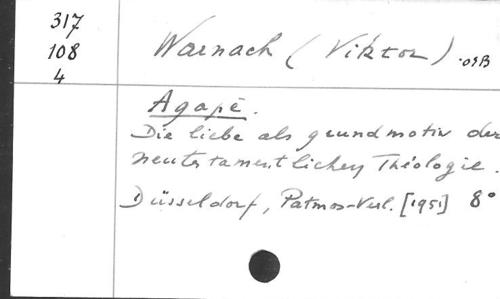 317
108
4
Warnach (Viktor) . OSB
Agapè.
Die liebe als grundmotiv der
neutestamentlichen Théologie.
Düsseldorf, Patmos-Verl. [1951] 8°